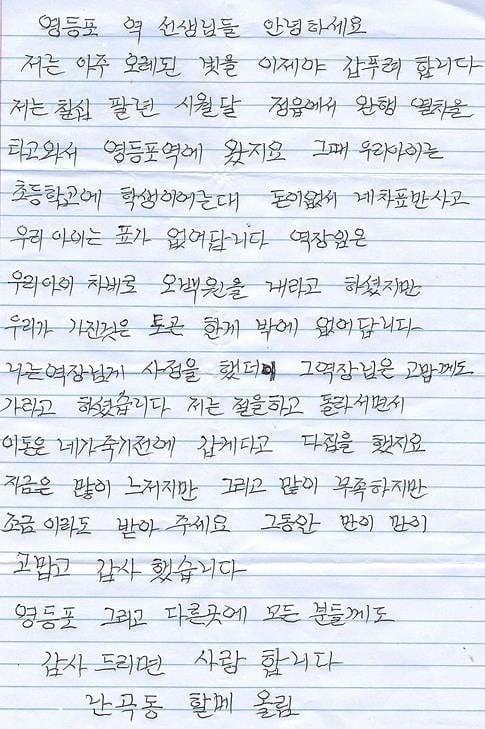 영등포 역 선생님들 안녕하세요
저는 아주 오레된 빚을 이제야 갑푸려 합니다
저는 칠십 팔년 시월달 정읍에서 완행 열차을
타고와서 영등포역에 왔지요 그때 우리아이는
초등학교에 학생이어는대 돈이없서 네차표만사고
우리 아이는 표가 없어답니다 역장임은
우리아이 차비로 오백원을 내라고 하셨지만
우리가 가진것은 토큰 한게 밖에 없어답니다
나는역장님게 사정을 했더니 그역장님은 고맙께도
가라고 하셨습니다 저는 절을하고 돌라서면서
이돈은 네가죽기전에 갑게다고 다짐을 했지요
지금은 많이 느저지만 그리고 많이 부족하지만
조금 이라도 받아 주세요 그동안 만이 만이
고맙고 감사 했습니다
영등포 그리고 다른곳에 모든 분들께도
감사 드리면 사랑 합니다
난곡동 할메 올림